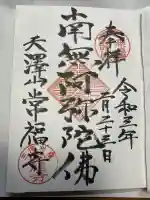 奉拝
令和三年
二月二十三日
南無阿弥陀佛
天澤山常福寺